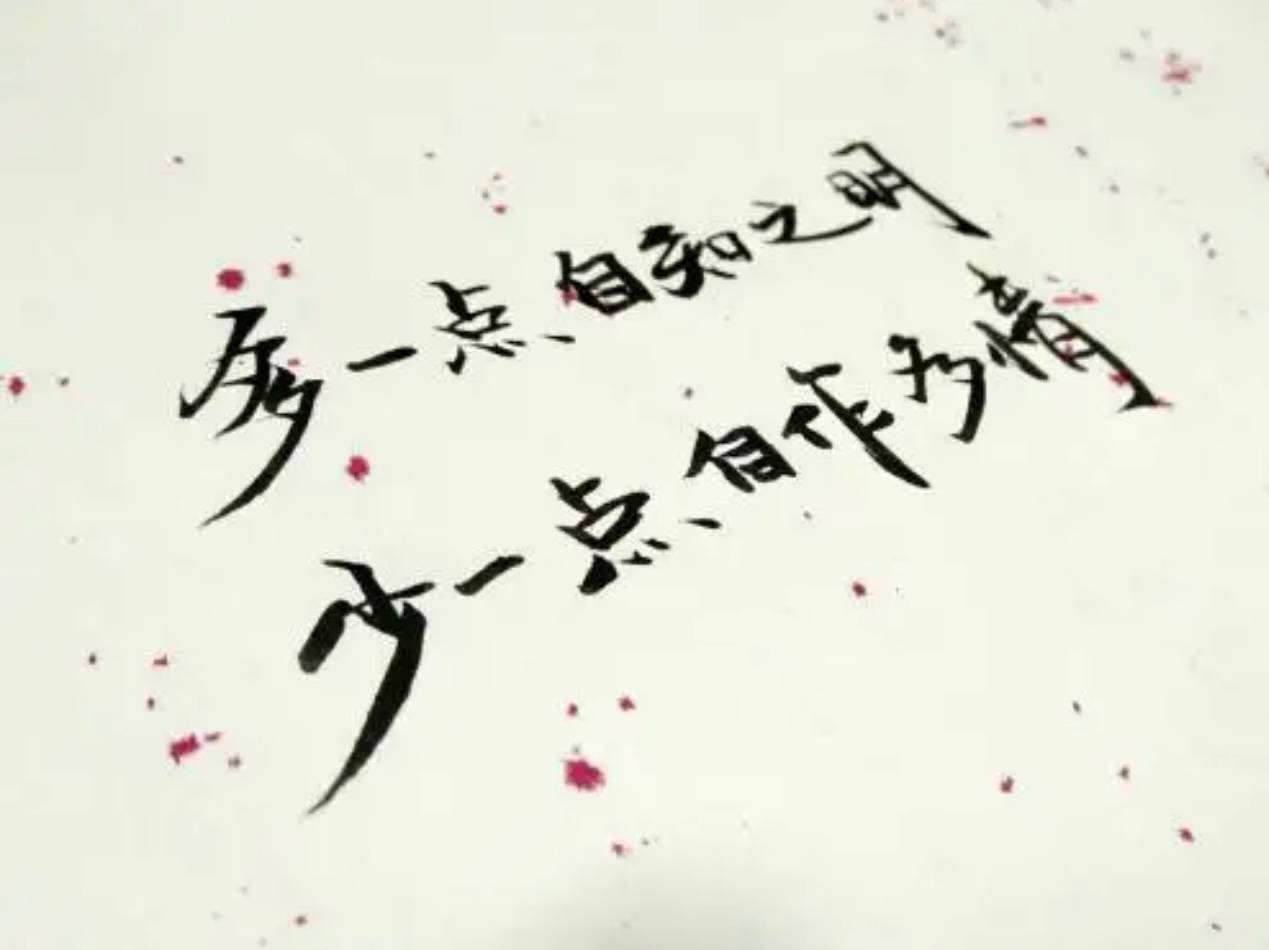 多一点、自知之明
少一点、自作多情